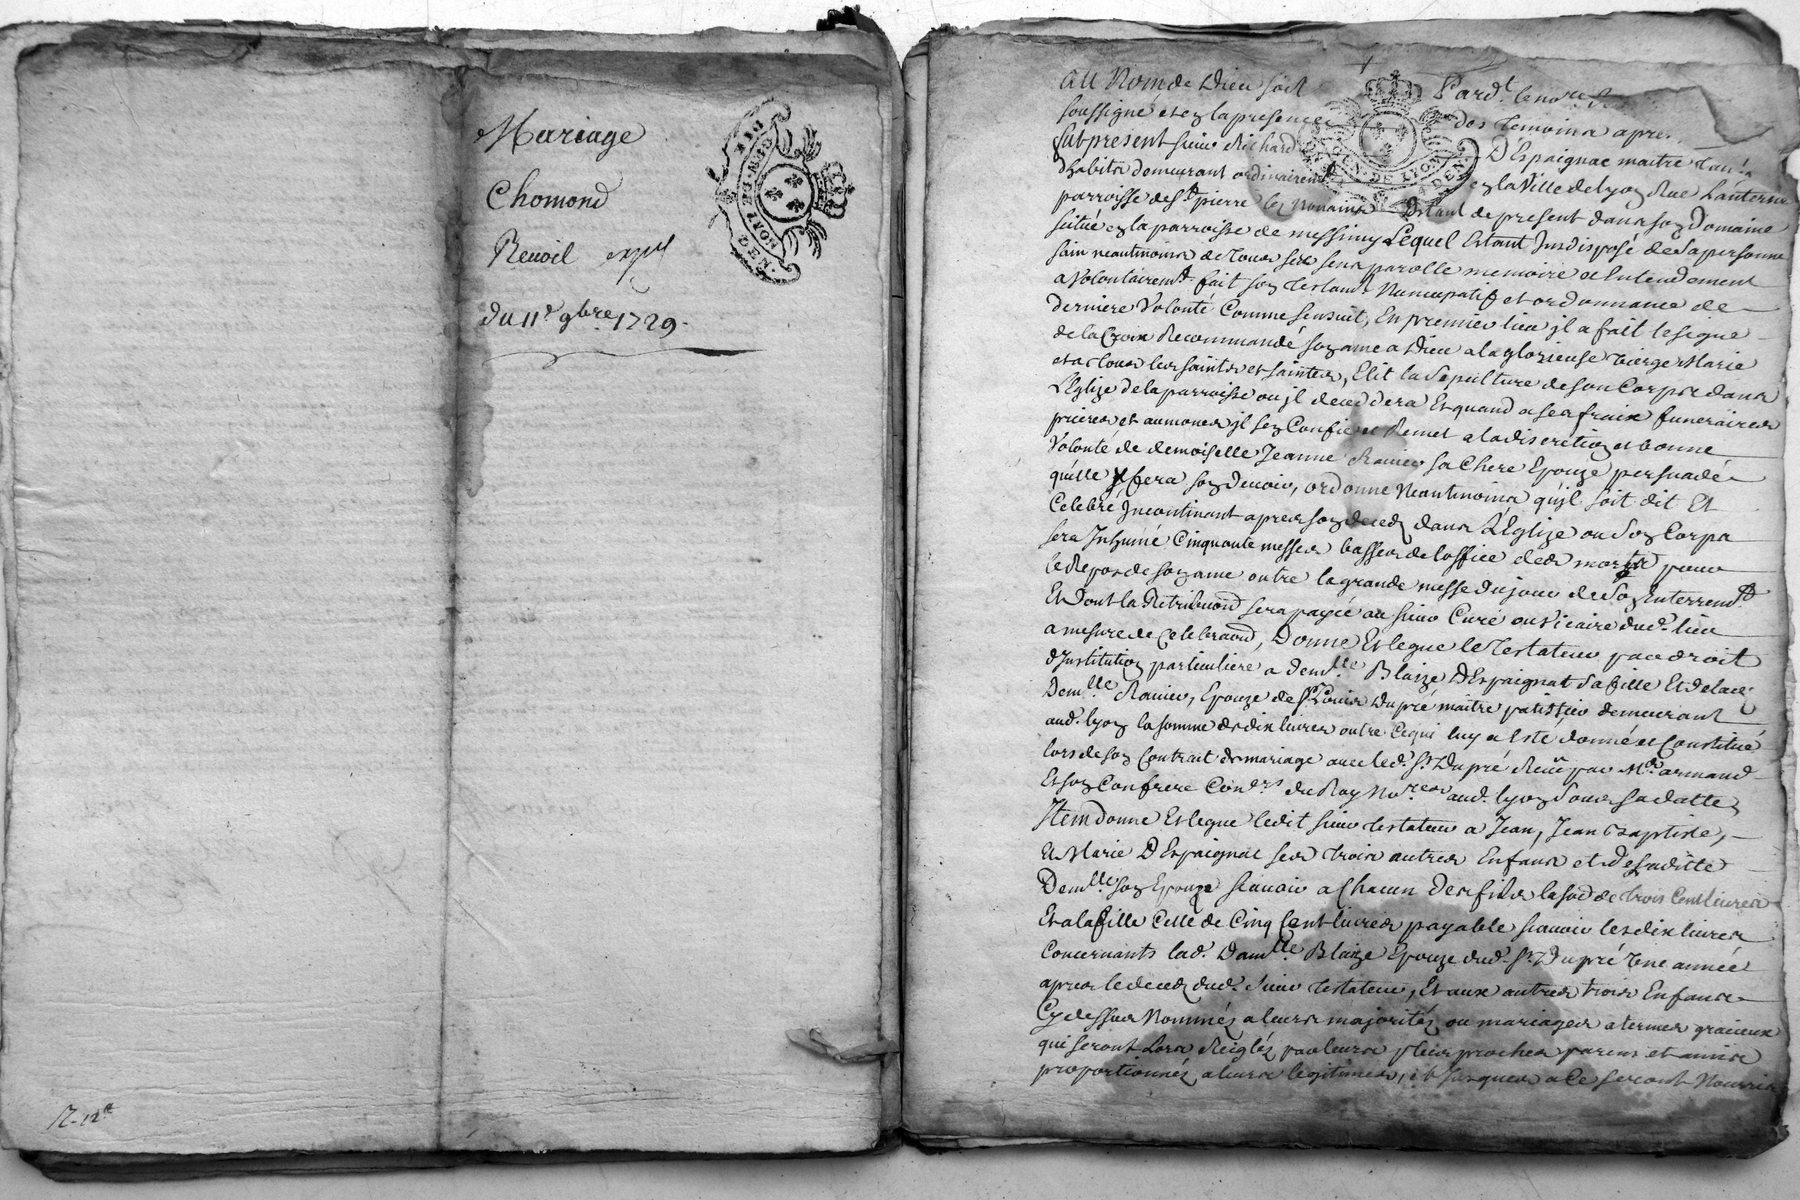 Mariage
Chomond
Revoil expé
du 11e 9bre 1729.
GEN. MONT ET RIE
12-12e
Au Nom de Dieu soit Pard.t le no.re
soussigné et en la presence des temoins apres
fut present sieur Richard D'Espaignac maitre
d'habits demeurant ordinairement en la Ville de Lyon Rue Lanterne
parroisse de S.t pierre les Nonains Estant de present dans son Domaine
scitué en la parroisse de messimy Lequel Estant Indisposé de sa personne
sain neantmoins de tous ses sens parolle memoire et Entendement
a Volontairem.t fait son testam.t Nuncupatif et ordonnance de
derniere Volonté Comme sensuit, En premier lieu jl a fait le signe
de la Croix Recommandé son ame a Dieu a la glorieuse vierge Marie
et a tous les saints et saintes, Elit la sepulture de son Corps dans
L'Eglize de la parroisse ou jl deceddera Et quand a ses fraix funeraires
prieres et aumones jl s'en Confie et Remet a la discretion et bonne
Volonté de demoiselle Jeanne Ravier sa Chere Epouze persuadé
qu'elle y fera son devoir, ordonne Neantmoins qu'jl soit dit Et
Celebré Jncontinant apres son deced dans L'Eglize ou son Corps
sera Jnhumé Cinquante messes basses de l'office des morts pour
le Repos de son ame outre la grande messe du jour de son Enterrem.t
Et Dont la Retribuon sera payée au sieur Curé ou Vicaire dud. lieu
a mesure de Celebraon, Donne Et legue le testateur par droit
d'Institution particuliere a dem.lle Blaize D'Espaignat sa fille Et de lad.
Dem.lle Ravier, Epouze de s.r Louis Dupré maitre patissier demeurant
aud. lyon la somme de dix livres outre Ce qui luy a Esté donné et Constitué
lors de son Contrat de mariage avec led. S.r Dupré Receu par M.e armand
Et son Confrere Con.ers du Roy No.res aud. lyon sous sa datte,
Item donne Et legue ledit sieur testateur a Jean, Jean Baptiste,
Et Marie D'Espaignat ses trois autres Enfans et de saditte
Dem.lle son Epouze scavoir a Chacun des fils la som.e de trois Cent livres
Et a la fille Celle de Cinq Cent livres payable scavoir les dix livres
Concernants lad. Dam.lle Blaize Epouze dud. S.r Dupré Une année
apres le deced dud. sieur testateur, Et aux autres trois Enfans
Cy dessus Nommés a leurs majorités ou mariages a termes gracieux
qui seront Lors Reiglés par leurs plus proches parens et amis
proportionnés a leurs legitimes, et Jusques a Ce seront Nourris